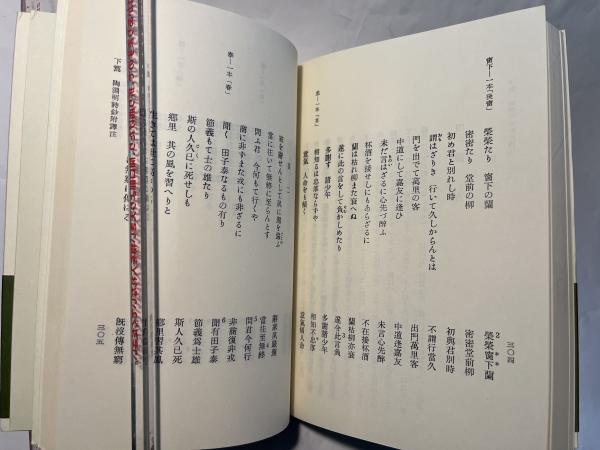 三〇四
窗下―一本「牀窗」
榮榮たり 窗下の蘭
密密たり 堂前の柳
初め君と別れし時
謂はざりき 行いて久しからんとは
門を出でて萬里の客
中道にして嘉友に逢ひ
未だ言はざるに心先づ醉ふ
杯酒を接せしにもあらざるに
蘭は枯れ柳また衰へぬ
遂に此の言をして負かしめたり
多謝す 諸少年
相知るは忠厚ならずや
意氣 人命をも傾く
榮榮窗下蘭
密密堂前柳
初與君別時
不謂行當久
出門萬里客
中道逢嘉友
未言心先醉
不在接杯酒
蘭枯柳亦衰
遂令此言負
多謝諸少年
相知不忠厚
意氣傾人命
泰―一本「春」
二
當に往いて無終に至らんとす
問ふ君 今何もて行くや
商に非ずまた戎にも非ざるに
聞く 田子泰なるもの有り
節義もて士の雄たり
斯の人久已に死せしも
鄕里 其の風を習へりと
辭家夙嚴駕
當往至無終
問君今何行
非商復非戎
聞有田子泰
節義爲士雄
斯人久已死
鄕里習其風
旣沒傳無窮
下篇 陶淵明詩鈔附譯注
三〇五